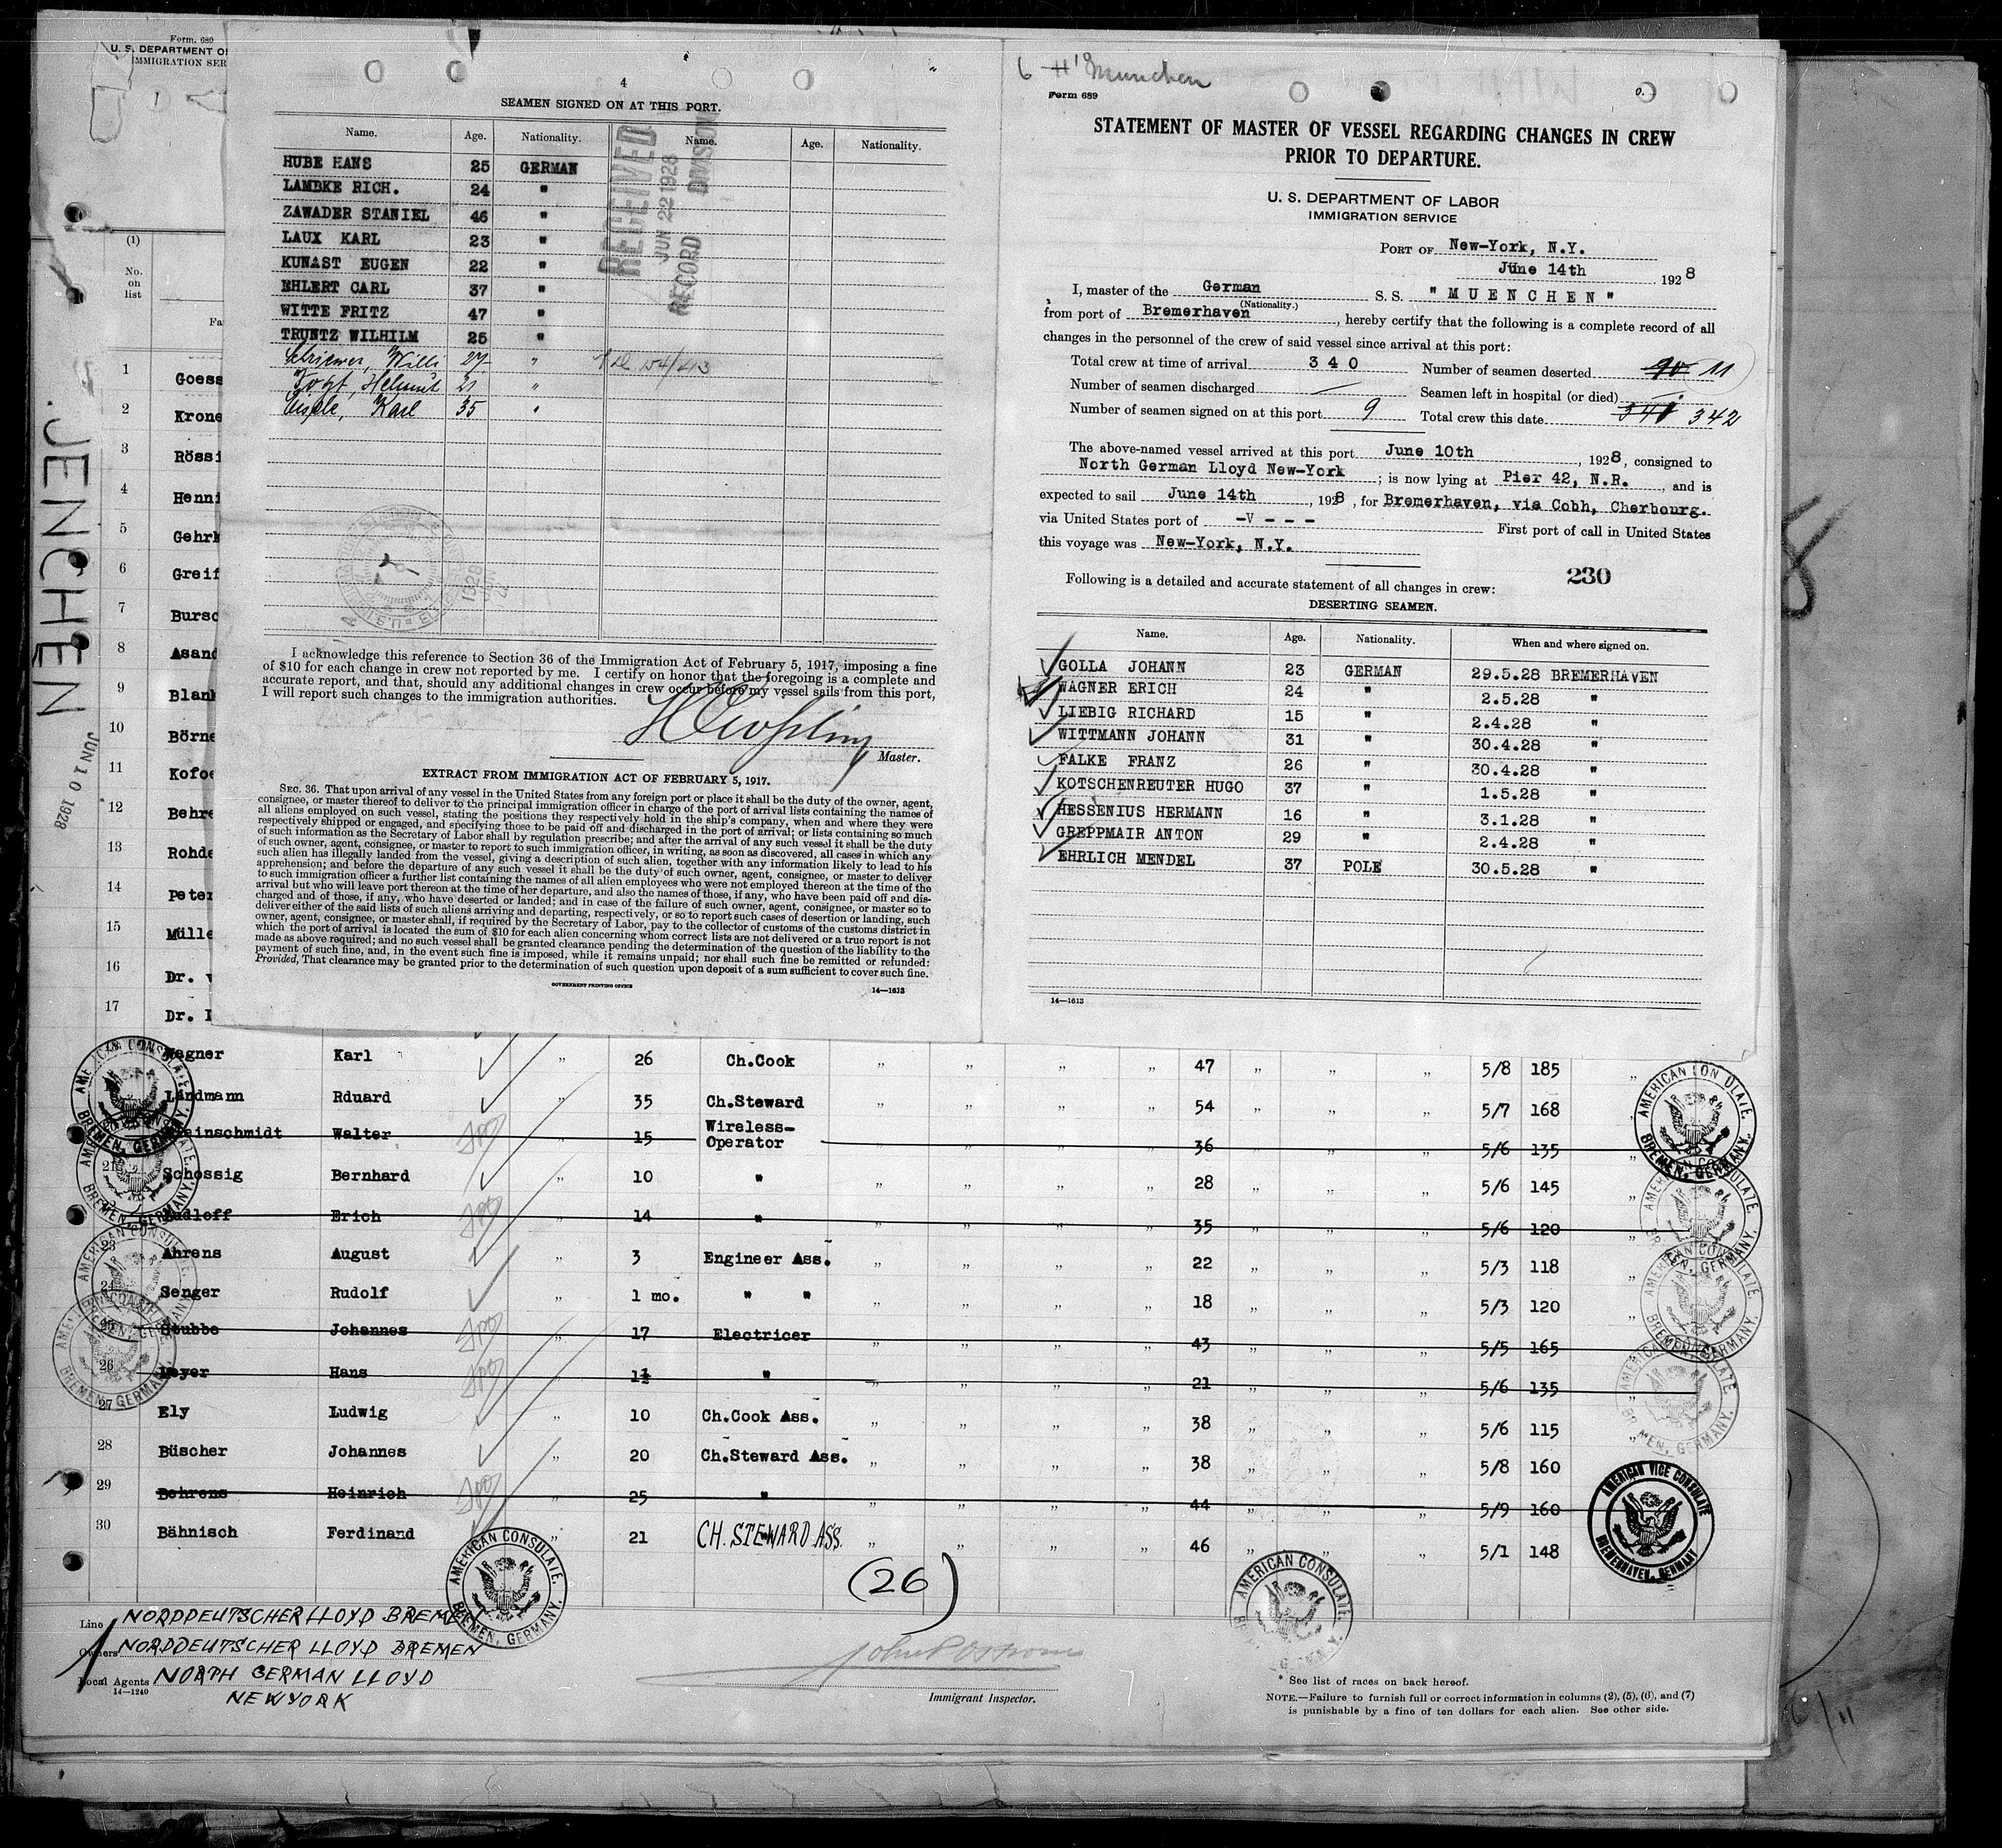 Form. 680
U. S. DEPARTMENT OF
IMMIGRATION SER
(1)
No.
on
list
Fa
JENCHEN
JUN 10 1928
4
SEAMEN SIGNED ON AT THIS PORT.
Name. Age. Nationality. Name. Age. Nationality.
HUBE HANS 25 GERMAN
LAMBKE RICH. 24 "
ZAWADER STANIEL 46 "
LAUX KARL 23 "
KUNAST EUGEN 22 "
EHLERT CARL 37 "
WITTE FRITZ 47 "
TRUNTZ WILHILM 25 "
Willi 27 "
Vogt, Helmut 21 "
Karl 35 "
RECEIVED
JUN 22 1928
RECORD DIVISION
I acknowledge this reference to Section 36 of the Immigration Act of February 5, 1917, imposing a fine
of $10 for each change in crew not reported by me. I certify on honor that the foregoing is a complete and
accurate report, and that, should any additional changes in crew occur before my vessel sails from this port,
I will report such changes to the immigration authorities.
Master.
EXTRACT FROM IMMIGRATION ACT OF FEBRUARY 5, 1917.
SEC. 36. That upon arrival of any vessel in the United States from any foreign port or place it shall be the duty of the owner, agent,
consignee, or master thereof to deliver to the principal immigration officer in charge of the port of arrival lists containing the names of
all aliens employed on such vessel, stating the positions they respectively hold in the ship's company, when and where they were
respectively shipped or engaged, and specifying those to be paid off and discharged in the port of arrival; or lists containing so much
of such information as the Secretary of Labor shall by regulation prescribe; and after the arrival of any such vessel it shall be the duty
of such owner, agent, consignee, or master to report to such immigration officer, in writing, as soon as discovered, all cases in which any
such alien has illegally landed from the vessel, giving a description of such alien, together with any information likely to lead to his
apprehension; and before the departure of any such vessel it shall be the duty of such owner, agent, consignee, or master to deliver
to such immigration officer a further list containing the names of all alien employees who were not employed thereon at the time of the
arrival but who will leave port thereon at the time of her departure, and also the names of those, if any, who have been paid off and dis-
charged and of those, if any, who have deserted or landed; and in case of the failure of such owner, agent, consignee, or master so to
deliver either of the said lists of such aliens arriving and departing, respectively, or so to report such cases of desertion or landing, such
owner, agent, consignee, or master shall, if required by the Secretary of Labor, pay to the collector of customs of the customs district in
which the port of arrival is located the sum of $10 for each alien concerning whom correct lists are not delivered or a true report is not
made as above required; and no such vessel shall be granted clearance pending the determination of the question of the liability to the
payment of such fine, and, in the event such fine is imposed, while it remains unpaid; nor shall such fine be remitted or refunded:
Provided, That clearance may be granted prior to the determination of such question upon deposit of a sum sufficient to cover such fine.
GOVERNMENT PRINTING OFFICE
14—1613
Munchen
Form 689
STATEMENT OF MASTER OF VESSEL REGARDING CHANGES IN CREW
PRIOR TO DEPARTURE.
U. S. DEPARTMENT OF LABOR
IMMIGRATION SERVICE
PORT OF New-York, N.Y.
June 14th 1928
I, master of the German S.S. "MUENCHEN"
(Nationality.)
from port of Bremerhaven, hereby certify that the following is a complete record of all
changes in the personnel of the crew of said vessel since arrival at this port:
Total crew at time of arrival 340 Number of seamen deserted 11
Number of seamen discharged — Seamen left in hospital (or died)
Number of seamen signed on at this port 9 Total crew this date 341 342
The above-named vessel arrived at this port June 10th, 1928, consigned to
North German Lloyd New-York; is now lying at Pier 42, N.R., and is
expected to sail June 14th, 1928, for Bremerhaven, via Cobh, Cherbourg.
via United States port of -V - - - First port of call in United States
this voyage was New-York, N.Y.
230
Following is a detailed and accurate statement of all changes in crew:
DESERTING SEAMEN.
Name. Age. Nationality. When and where signed on.
GOLLA JOHANN 23 GERMAN 29.5.28 BREMERHAVEN
WAGNER ERICH 24 " 2.5.28 "
LIEBIG RICHARD 15 " 2.4.28 "
WITTMANN JOHANN 31 " 30.4.28 "
FALKE FRANZ 26 " 30.4.28 "
KOTSCHENREUTER HUGO 37 " 1.5.28 "
HESSENIUS HERMANN 16 " 3.1.28 "
GREPPMAIR ANTON 29 " 2.4.28 "
EHRLICH MENDEL 37 POLE 30.5.28 "
14—1613
1 Goess
2 Krone
3 Rössi
4 Henni
5 Gehrk
6 Greif
7 Bursc
8 Asand
9 Blank
10 Börne
11 Kofoe
12 Behre
13 Rohde
14 Peter
15 Mülle
16 Dr. v
17 Dr.
Wagner Karl " 26 Ch.Cook " " " " 47 " " " 5/8 185 "
Lindmann Rduard " 35 Ch.Steward " " " " 54 " " " 5/7 168
Steinschmidt Walter " 15 Wireless-
Operator 36 5/6 135 "
21 Schossig Bernhard 10 " " " " " 28 " " " 5/6 145 "
Rudloff Erich " 14 " " " " " 35 " " " 5/6 120 "
23 Ahrens August " 3 Engineer Ass. " " " " 22 " " " 5/3 118
24 Senger Rudolf " 1 mo. " " " " " " 18 " " " 5/3 120 "
Stubbe Johannes " 17 Electricer " " " " 43 " " " 5/5 165
26 Meyer Hans " 1½ " " " " " 21 " " " 5/6 135 "
27 Ely Ludwig " 10 Ch.Cook Ass. " " " " 38 " " " 5/6 115 "
28 Büscher Johannes " 20 Ch.Steward Ass. " " " " 38 " " " 5/8 160
29 Behrens Heinrich " 25 " " " " " 44 " " " 5/9 160
30 Bähnisch Ferdinand " 21 CH. STEWARD ASS. " " " " 46 " " " 5/1 148
AMERICAN CONSULATE.
BREMEN, GERMANY.
AMERICAN VICE CONSULATE
BREMERHAVEN, GERMANY
(26)
Line NORDDEUTSCHER LLOYD BREMEN
Owners NORDDEUTSCHER LLOYD BREMEN
Local Agents NORTH GERMAN LLOYD
14—1240
NEW YORK
Immigrant Inspector.
* See list of races on back hereof.
NOTE.—Failure to furnish full or correct information in columns (2), (5), (6), and (7)
is punishable by a fine of ten dollars for each alien. See other side.